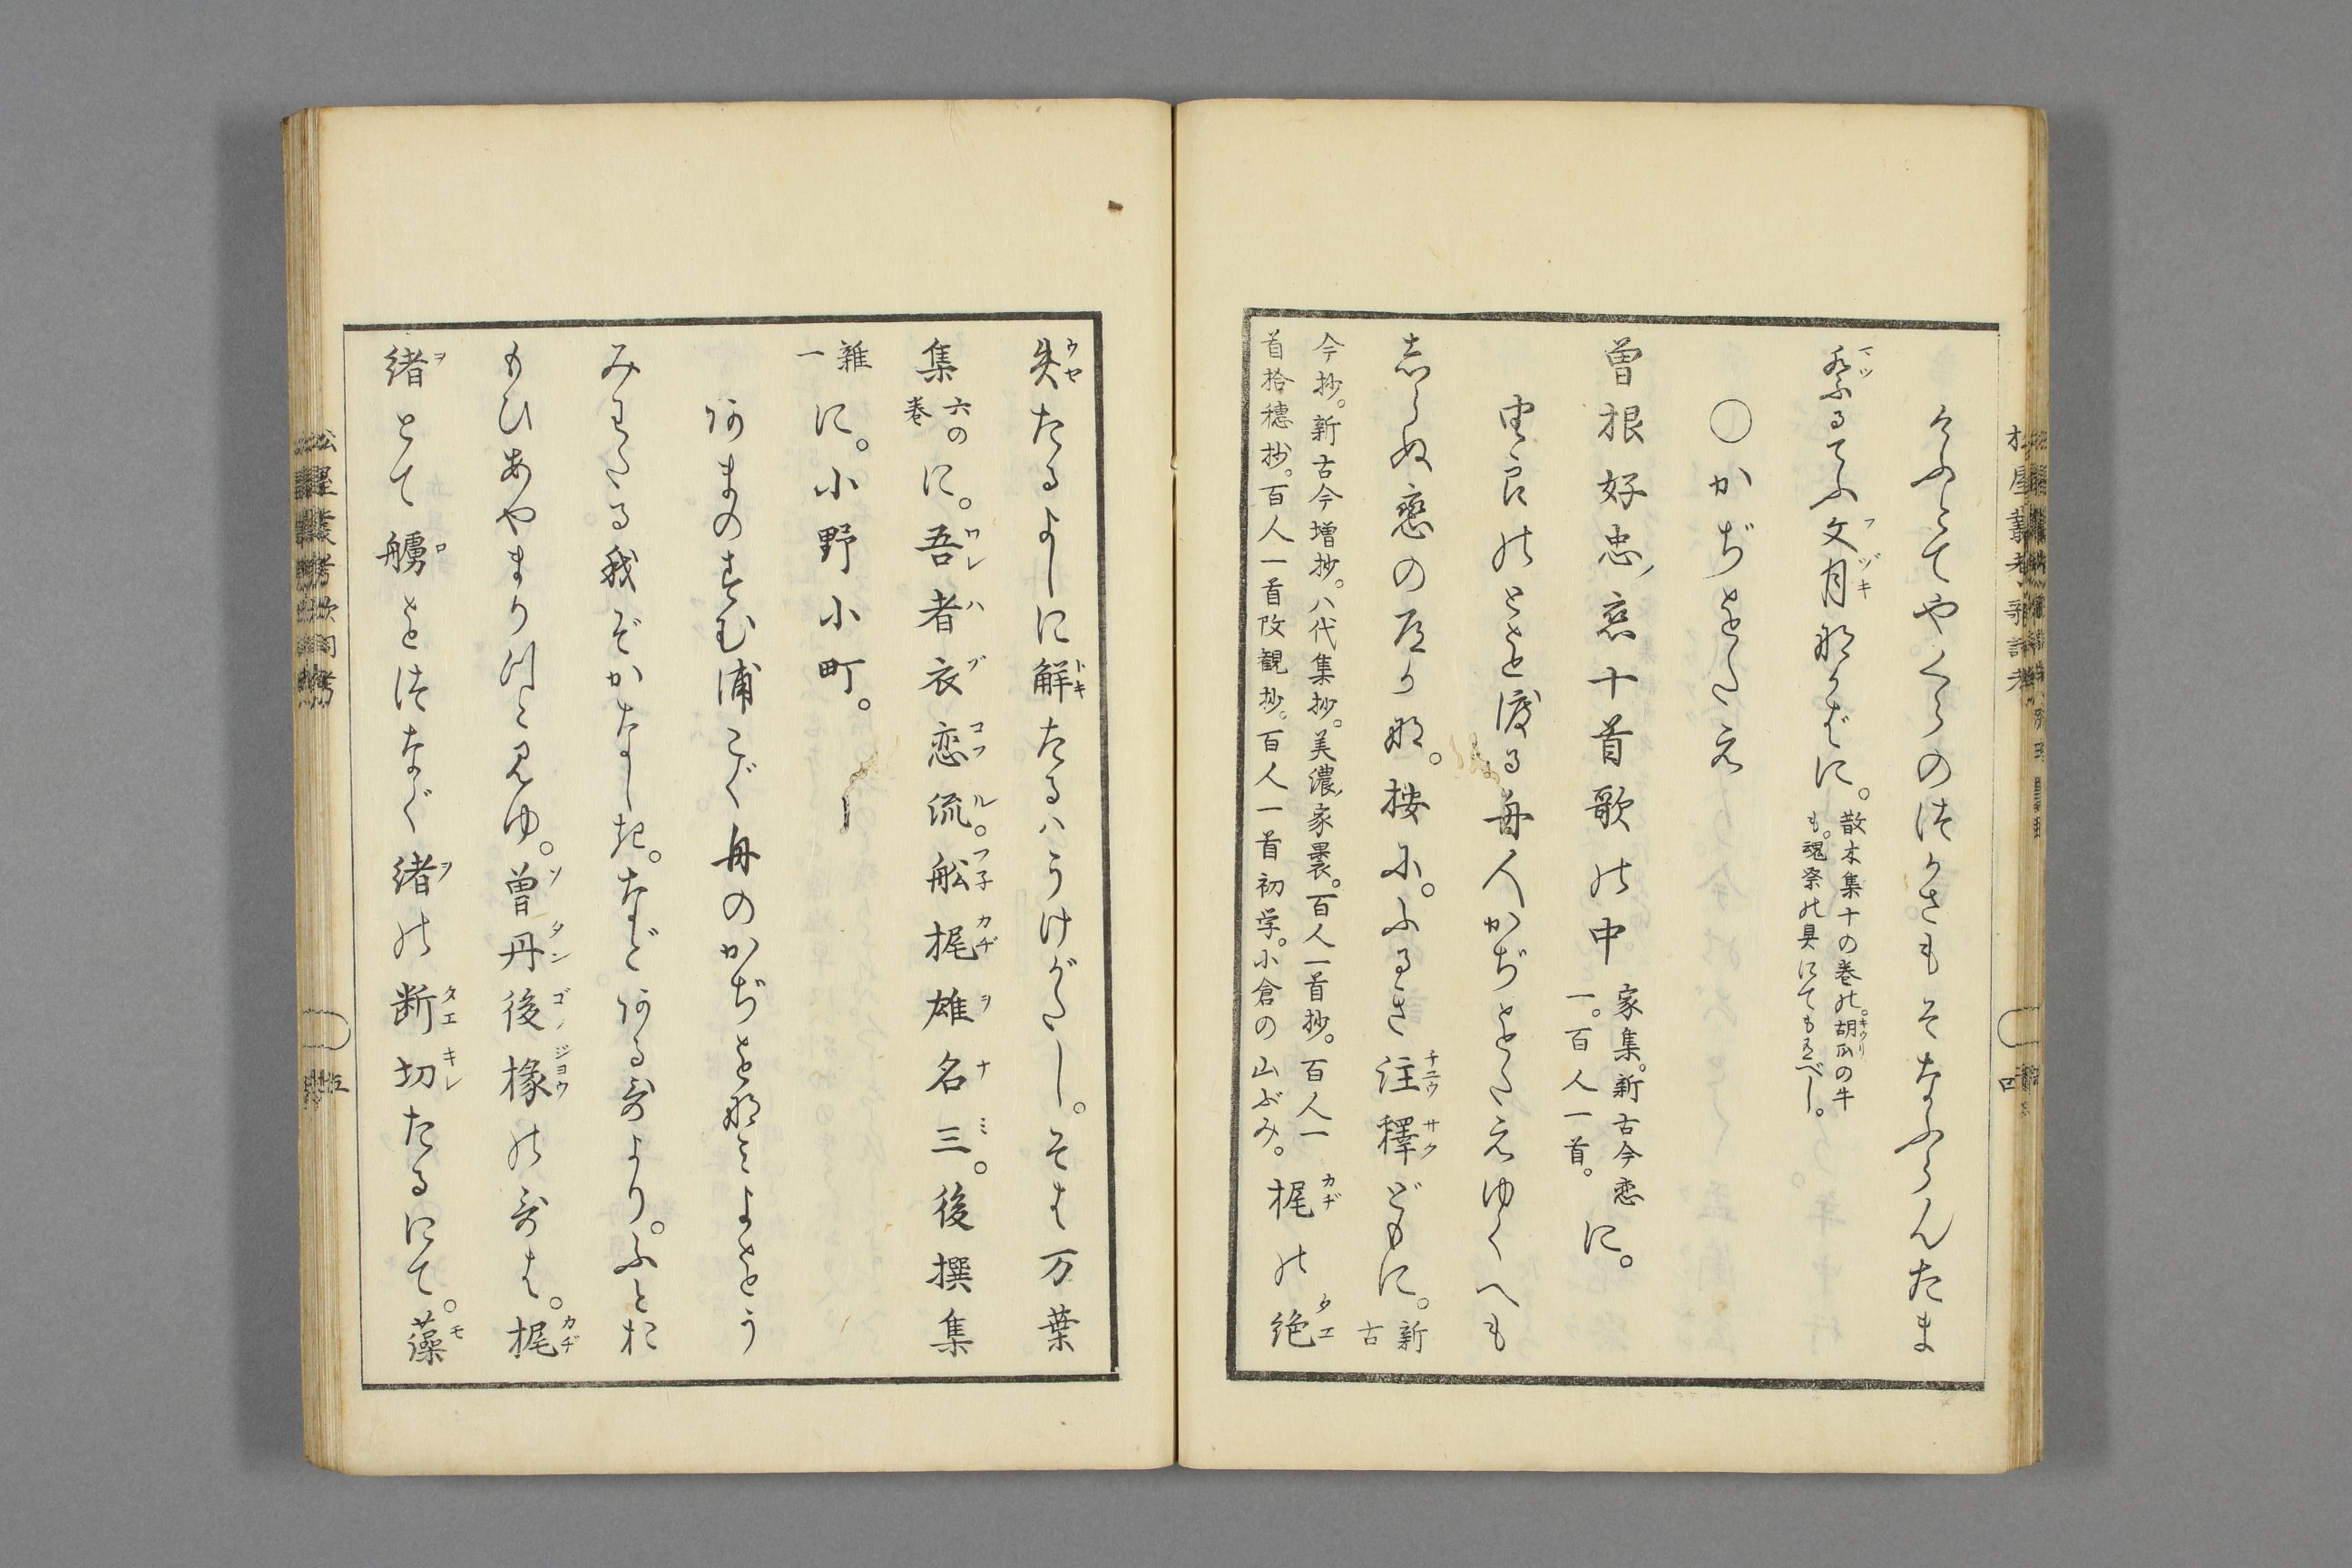 けふとてやくらのはかさもそなふらんたま
祭ふるてふ文月なかばに。散木集十の巻の。胡瓜の牛
も。魂祭の具にてもあべし。
○かぢをたえ
曽根好忠恋十首歌の中 家集。新古今恋
一。百人一首。に。
由良のとを渡る舟人かぢをたえゆくへも
しらぬ戀の道かな。按に。ふるき注釋どもに。新古
今抄。新古今増抄。八代集抄。美濃家裹。百人一首抄。百人一
首拾穗抄。百人一首改観抄。百人一首初学。小倉の山ぶみ。梶の絶
失たるよしに解たるハうけがたし。そは万葉
集六の巻に。吾者衣恋流。舩梶雄名三。後撰集
雜一に。小野小町。
あまのすむ浦こぐ舟のかぢをなみよをう
みわたる我ぞかなしき。などある哥より。ふとお
もひあやまりつと見ゆ。曽丹後掾の哥は。梶
緒とて艣をつなぐ緒の断切たるにて。藻
松屋叢考歌詞考
五
四